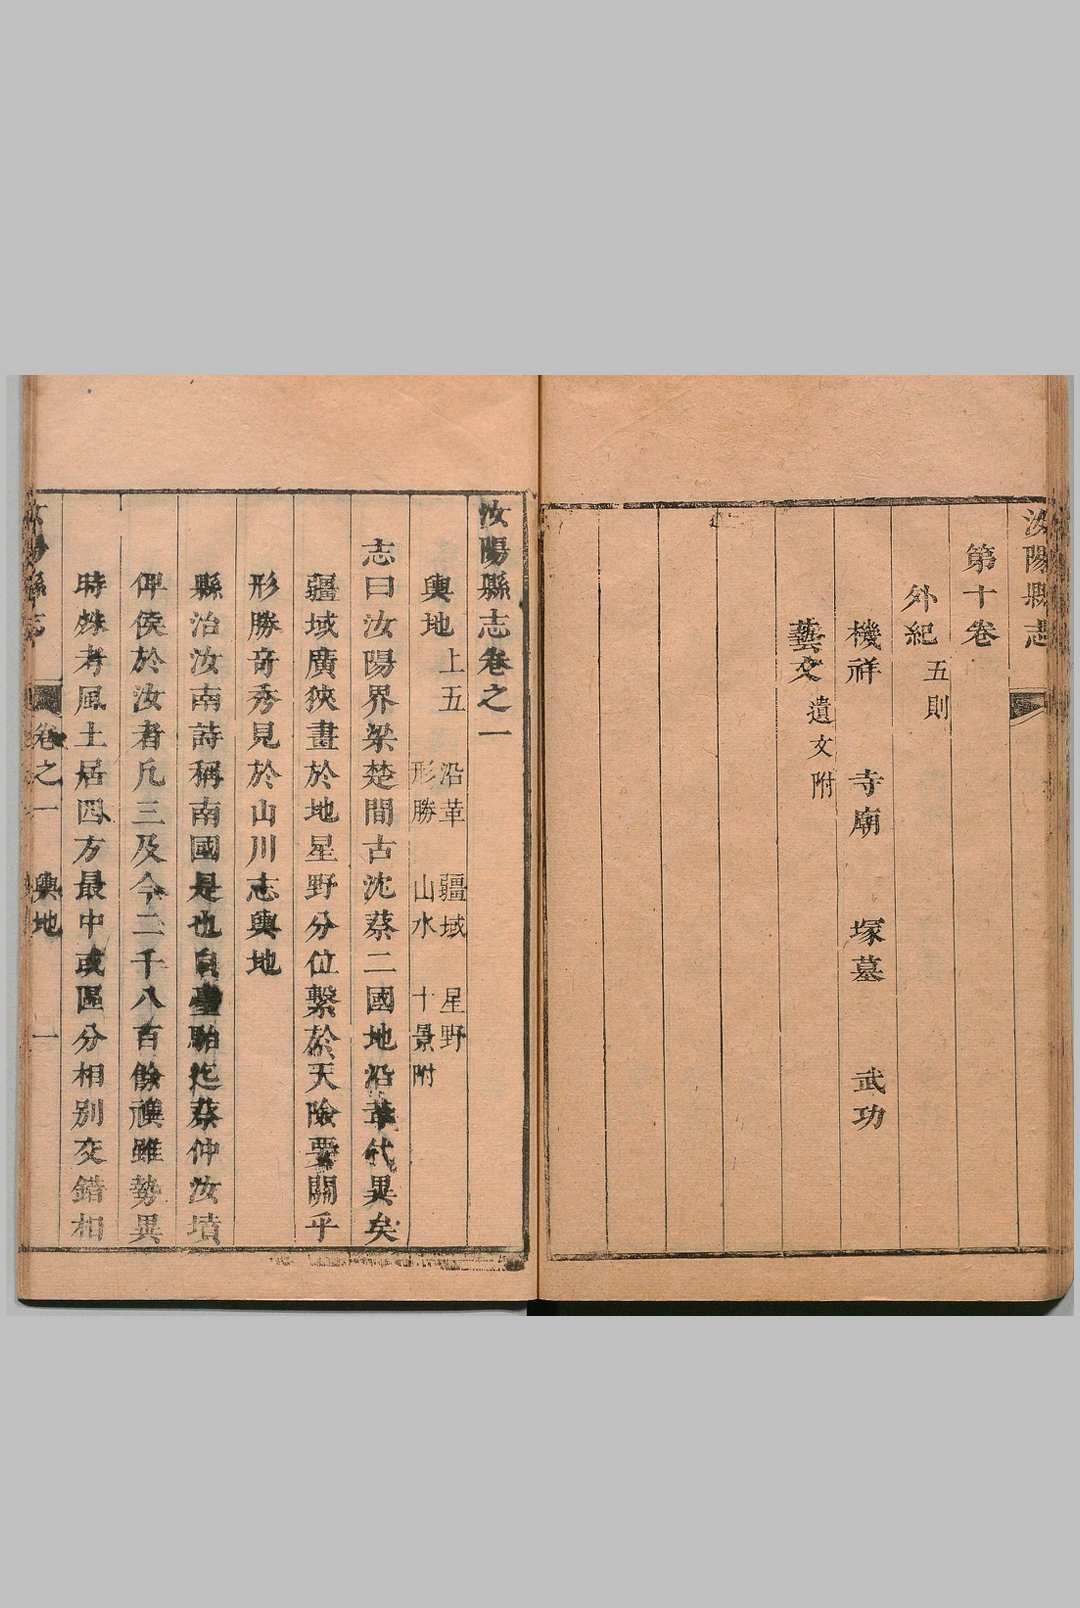 汝陽縣志
第十卷
外紀 五則
機祥 寺廟 塚墓 武功
藝文 遺文附
汝陽縣志卷之一
輿地上五 沿革 疆域 星野
形勝 山水 十景附
志曰汝陽界梁楚間古沈蔡二國地沿革代異矣
疆域廣狹畫於地星野分位繫於天險要關乎
形勝奇秀見於山川志輿地
縣治汝南詩稱南國是也自臺駘迄蔡仲汝墳
俾侯於汝者凡三及今二千八百餘禩雖勢異
時殊考風土居四方最中或區分相別交錯相
汝陽縣志 卷之一 輿地 一